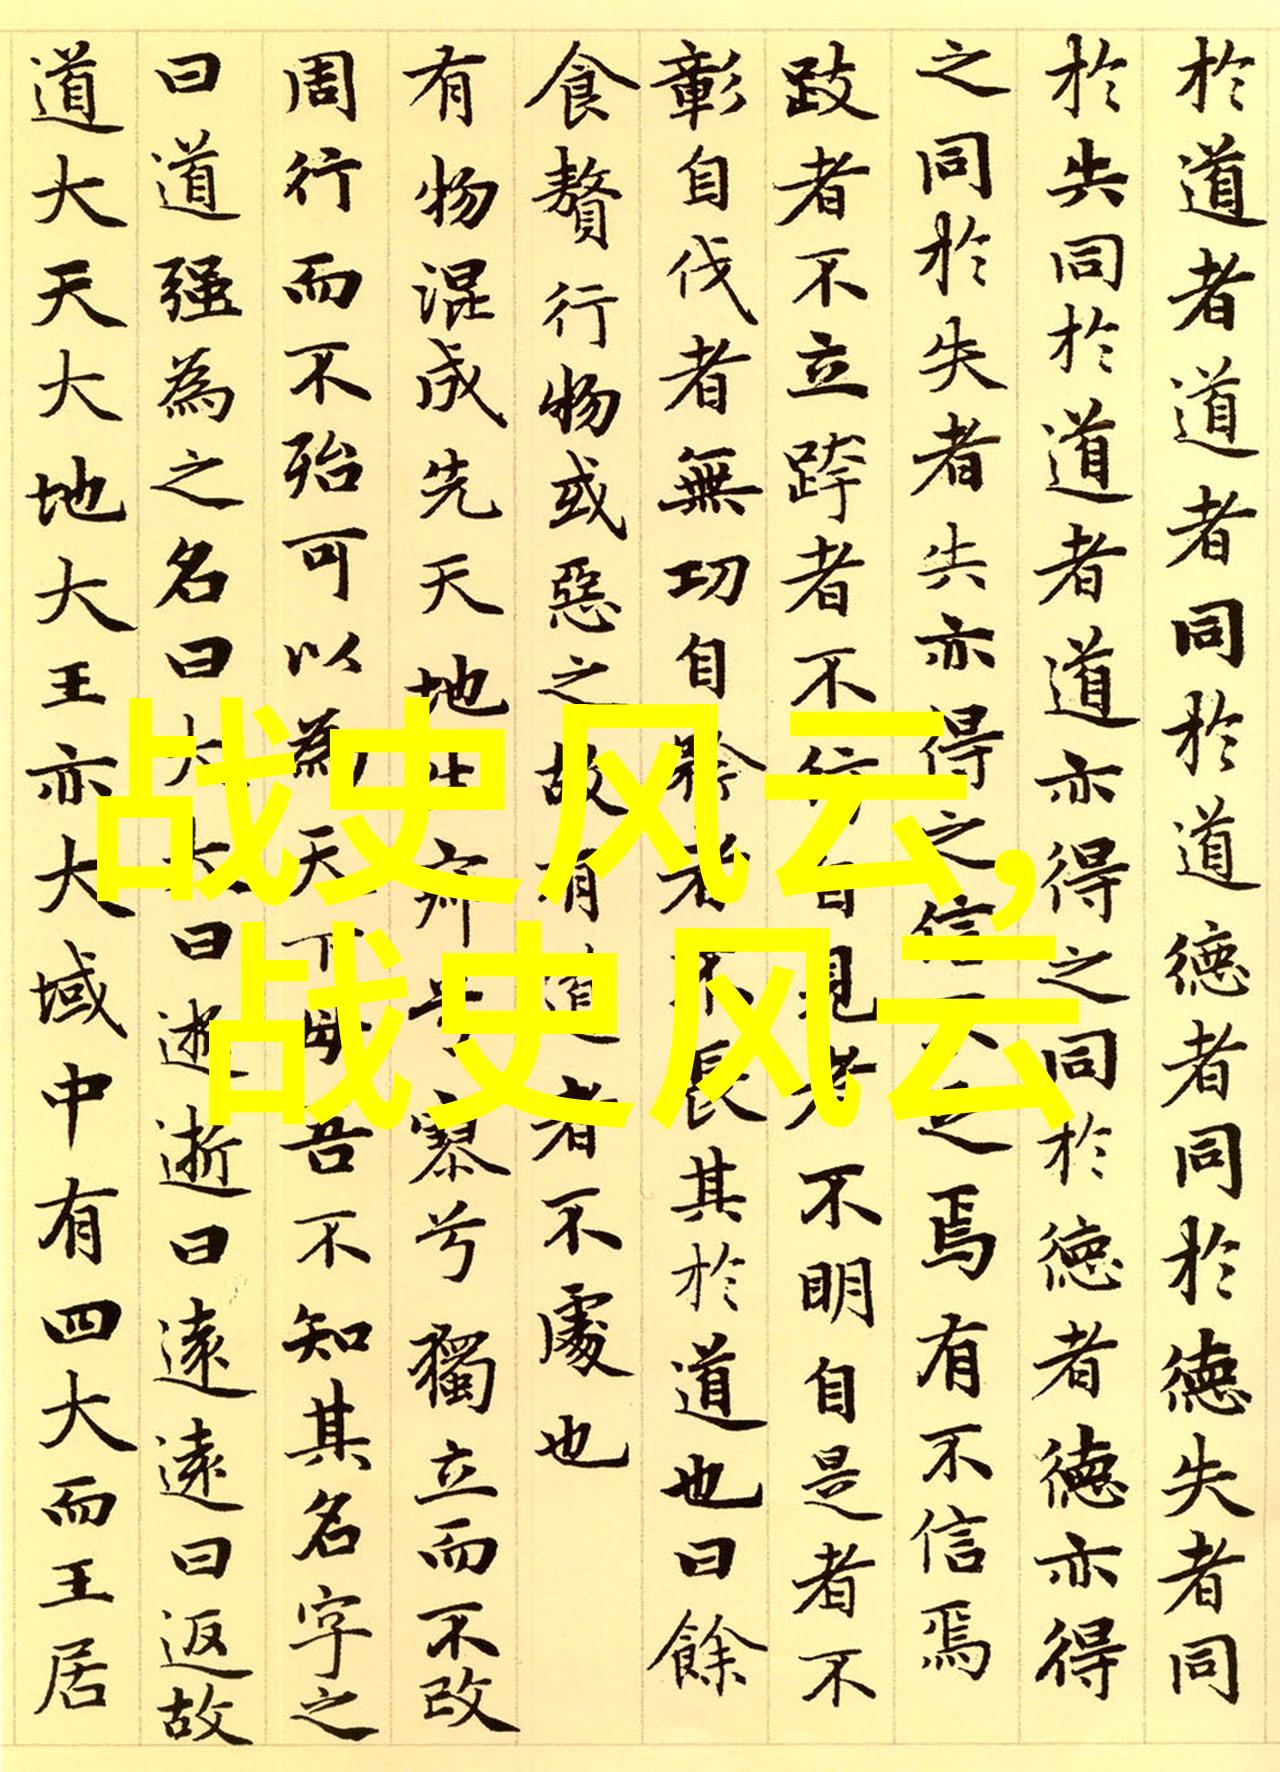 於道者道者同於道德者同於德失者同
於失同於道者道亦得之同於德者德亦得
之同於失者失亦得之信不足焉有不信焉
跂者不立跨者不行自見者不明自是者不
彰自伐者無功自矜者不長其於道也曰餘
食贅行物或惡之故有道者不處也
有物混成先天地生寂兮寥兮獨立而不改
周行而不殆可以為天下母吾不知其名字之
曰道强為之名曰大大曰逝逝曰遠遠曰返故
道大天大地大王亦大域中有四大而王居
战史风云,
战史风云